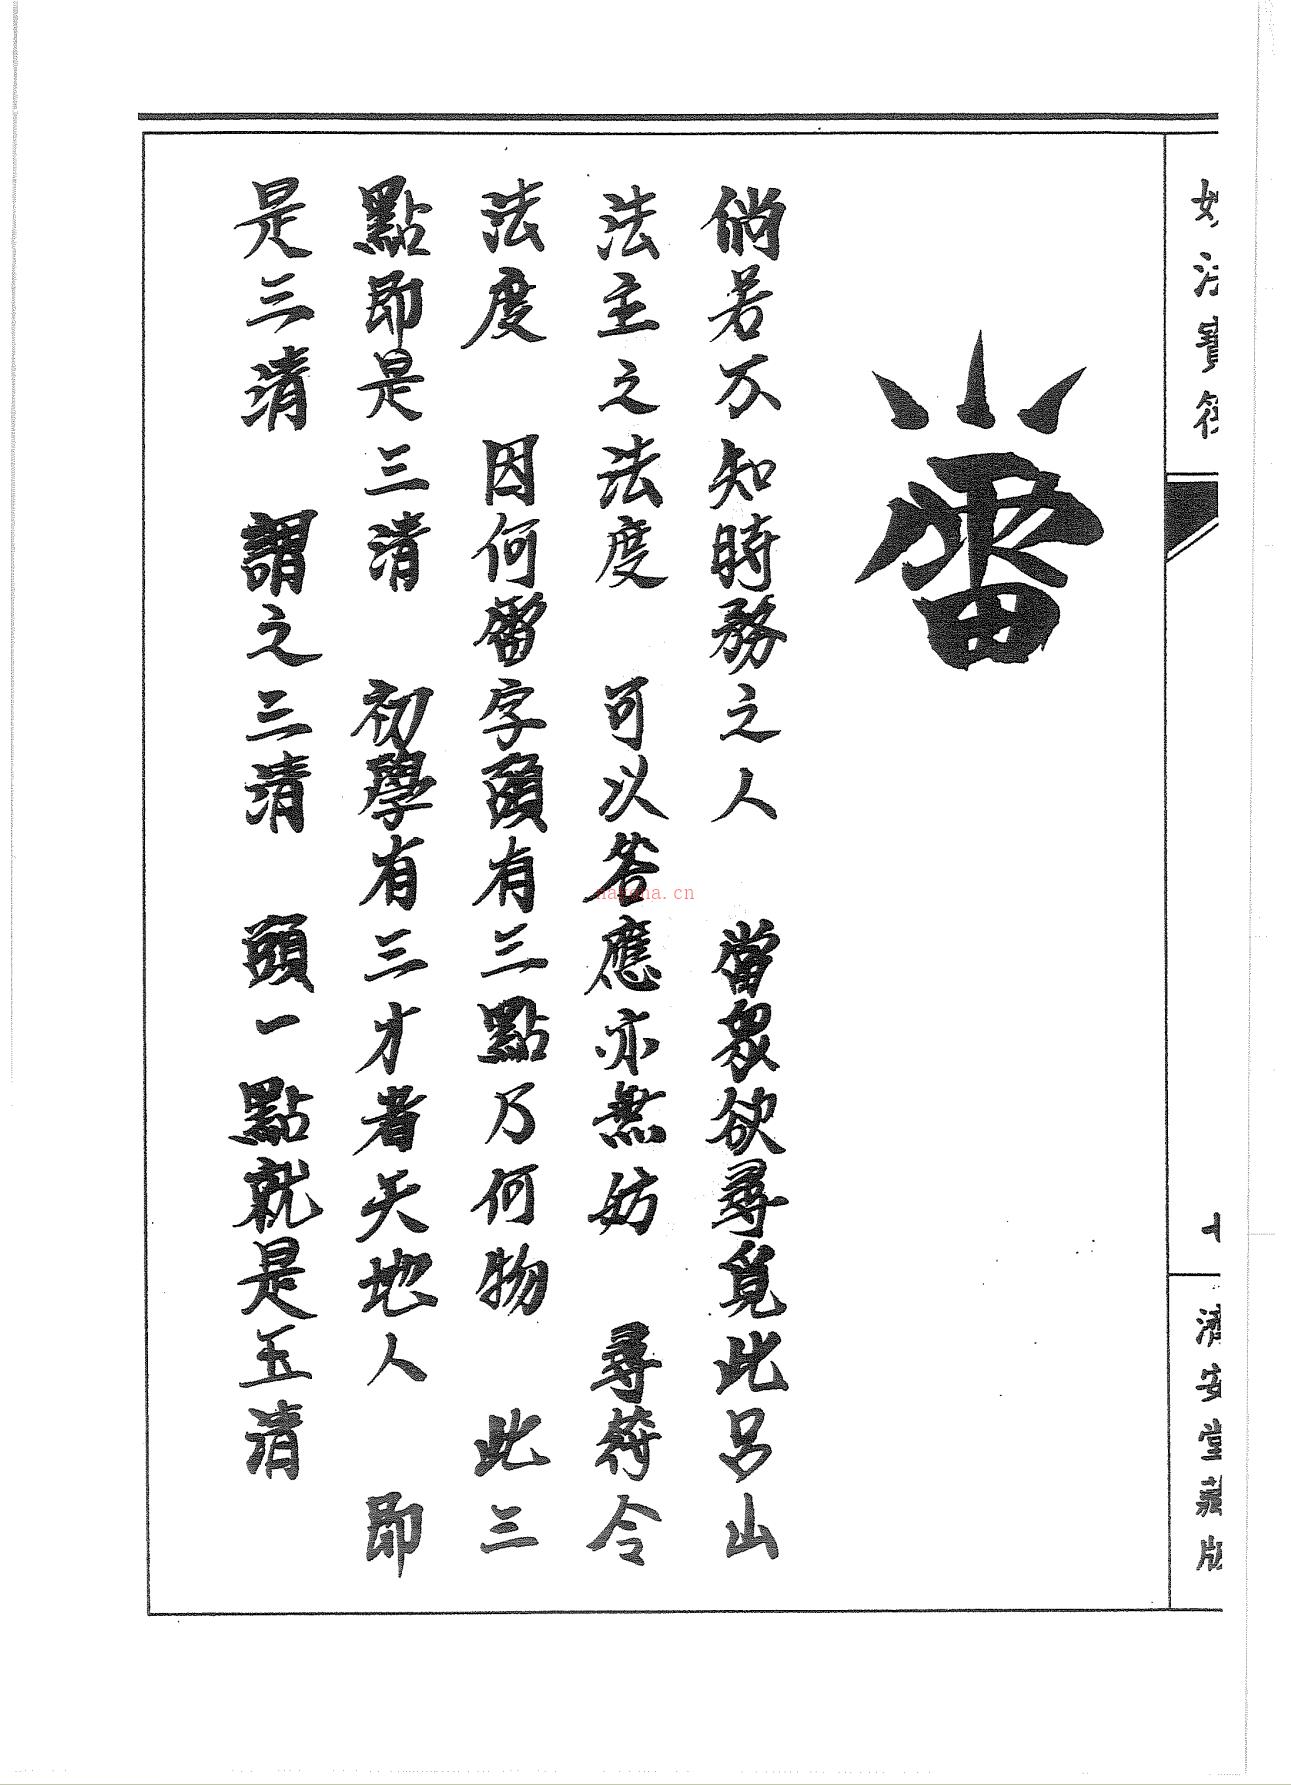 妙法寶
濟安堂藏版
倘若不知時務之人 當眾欲尋覓此呂山
法主之法度 可以答應亦無妨 尋符令
法度 因何字頭有三點乃何物 此三
點即是三清 初學有三才者天地人 即
是三清 謂之三清 頭一點就是玉清
nayona.cn